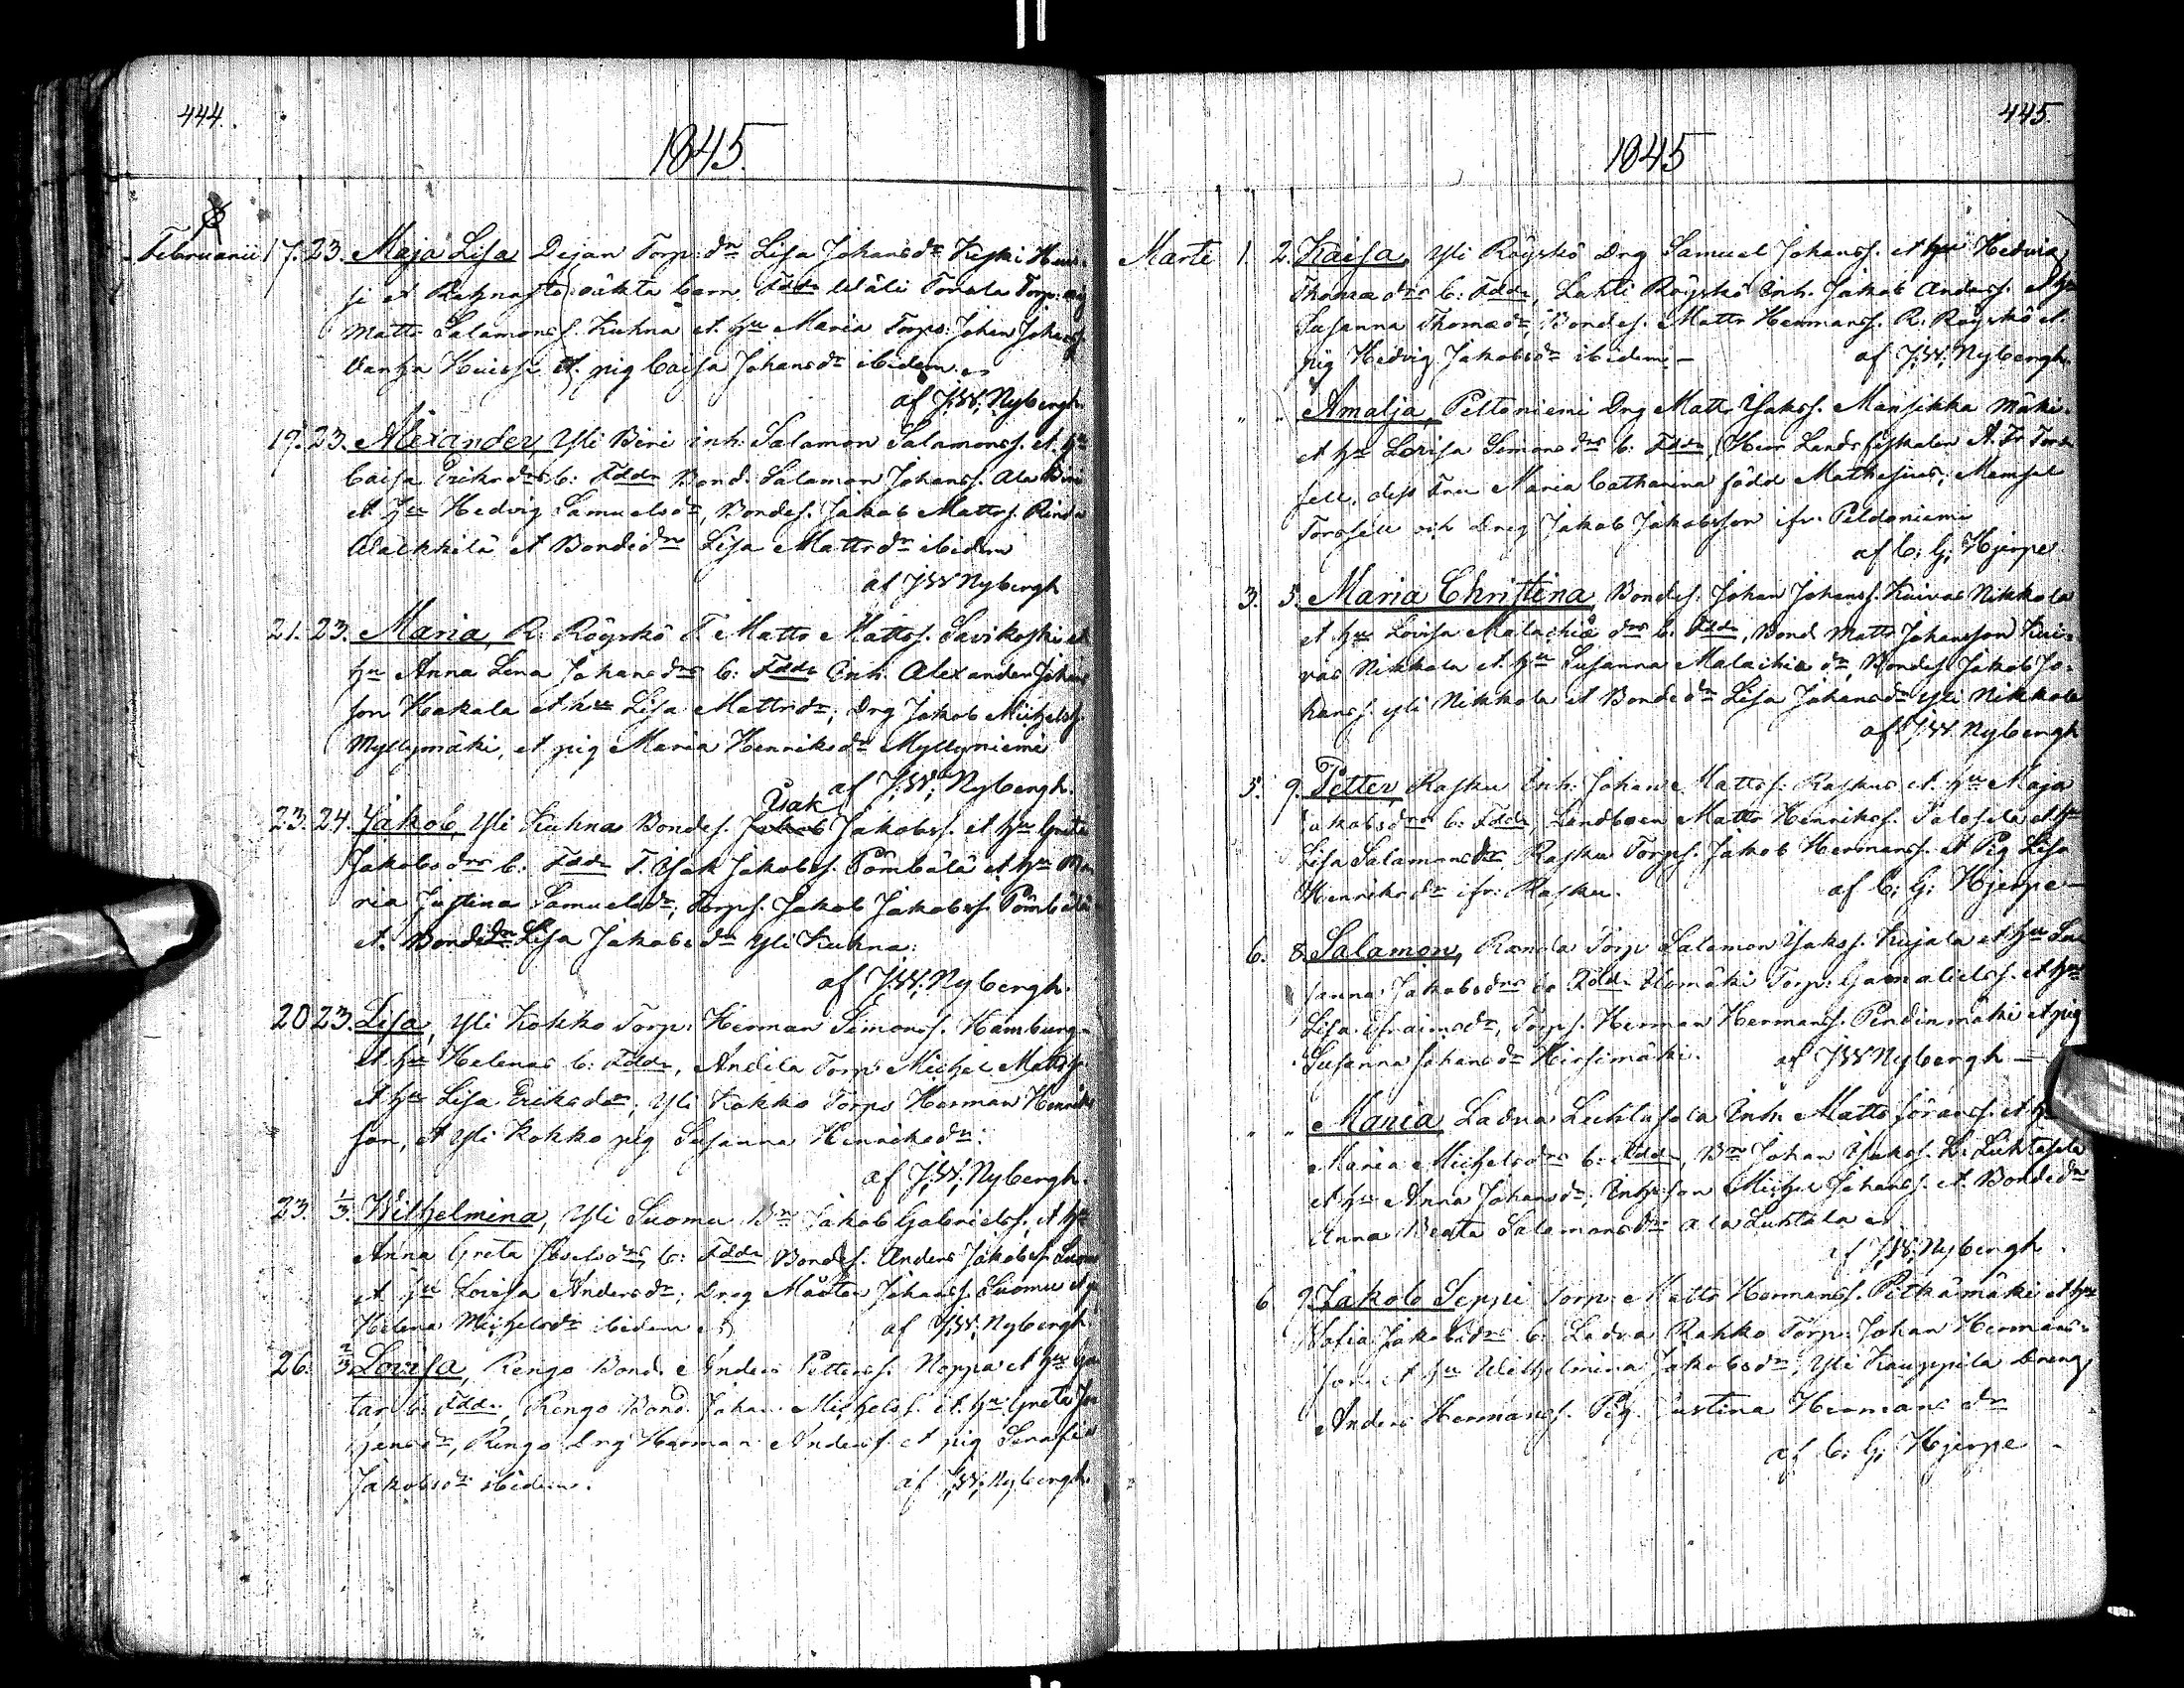 444.
1845.
Februarii 17. 23. Maja Lisa Dejan Torp: dr Lisa Johansdr Keski Huis-
si et oäkta barn Fddr Wäli Torp:
Matts Salamonss. Kuhna et hu Maria Torps: Johan Johanss.
Huissi et. pig Caisa Johansdr ibidem
af J:W: Nybergh.
19. 23. Alexander, Yli Biri inh: Salamon Salamonss. et. hu
Caisa Eriksdrs b: Fddr Bond. Salamon Johanss. Ala Biri
et hu Hedvig Samuelsdr, Bondes. Jakob Mattss. Rinda
Wäckkilä et Bondedr Lisa Mattsdr ibidem
af J:W: Nybergh
21. 23. Maria, R: Röyskö T. Matts Mattss. Savikoski et
hu Anna Lena Johansdrs b: Fddr Inh: Alexander Johans
son Hakala et hu Lisa Mattsdr; Drg Jakob Michelss.
Myllymäki, et pig Maria Henriksdr Myllyniemi
af J:W: Nybergh.
23. 24. Jakob, Yli Kuhna Bondes. Jakob Isak Jakobss. et hu Greta
Jakobsdrs b: Fddr T. Isak Jakobss. Pömbälä et hu Ma
ria Justina Samuelsdr; Torps. Jakob Jakobss. Pömbälä
et. Bondedr Lisa Jakobsdr Yli Kuhna:
af J:W: Nybergh.
20 23. Lisa, Yli Kokko Torp: Herman Simonss. Hamburg
et hu Helenas b: Fddr, Andila Torp: Michel Mattss.
et hu Lisa Eriksdr; Yli Kokko Torps Herman Henriks
son, et Yli Kokko pig Susanna Henriksdr:
af J:W: Nybergh.
23. 1/3. Wilhelmina, Yli Suomu Br Jakob Gabrielss. et hu
Anna Greta b: Fddr Bondes. Anders Jakobss. Suomu
et hu Lovisa Andersdr; Dreg Mårten Johanss. Suomu et p
Helena Michelsdr ibidem af J:W: Nybergh
26. 2/3 Lovisa, Rengo Bond. Anders Petterss. Noppa et hu
b: Fddr, Rengo Bond Johan Michelss. et hu Greta
Rengo Drg Herman Anderss. et pig Serafia
Jakobsdr ibidem. af J:W: Nybergh.
445.
1845
Marti 1. 2. Kaisa, Yli Röyskö Drg Samuel Johanss. et hu Hedvig
Thomædrs b: Fddr, Lahti Röyskö Inh. Jakob Anderss. et hu
Susanna Thomædr Bondes. Matts Hermanss. R. Röyskö et
pig Hedvig Jakobsdr ibidem - af J:W: Nybergh.
" " Amalja, Peltoniemi Drg Matts Isakss. Mansikka mäki
et hu Lovisa Simonsdrs b: Fddr, Herr Landsfiskalen A. Fr Toro
sell, dess Fru Maria Catharina född Mathesius; Memsel
Torosell och Dreg Jakob Jakobsson ifr: Peldoniemi
af C: G: Hjerpe
3. 5. Maria Christina, Bondes. Johan Johanss. Kuivas Nikkola
et hu Lovisa Malachiæ drs b: Fddr, Bond. Matts Johansson Kui-
vas Nikkola et. hu Susanna Malachiæ dr, Bondes. Jakob Jo-
hanss. Yli Nikkola et Bondedr Lisa Johansdr Yli Nikkola
af J:W: Nybergh
5. 9. Petter, Rasku Inh: Johan Mattss: Raskus et. hu Maja
Jakobsdrs b: Fddr, Landboen Matts Henrikss. Palosela et hu
Lisa Salamonsdr, Rasku Torps. Jakob Hermanss. et Pig Lisa
Henriksdr ifr: Rasku. af C: G: Hjerpe -
6. 8. Salamon, Ranola Torp Salamon Isakss. Kujala et hu Su
sanna Jakobsdrs b: Fddr Torp: Gamalielss. et hu
Lisa Efraimsdr, Torps. Herman Hermanss. Pendinmäki et pig
Susanna Johansdr Hirsimäki. af J:W: Nybergh -
" " Maria Ladva Luhtasela Inh. Matts et h
Maria Michelsdrs b: Fddr, Br Johan Isakss. L: Luhtasela
et hu Anna Johansdr; Inh: son Michel Johanss. et. Bondedr
Anna Beata Salamonsdr Ala Luhtala
af J:W: Nybergh.
6 9. Jakob Seppi Torp: Matts Hermanss. Pitkämäki et hu
Sofia Jakobsdrs b: Ladva Rahko Torp: Johan Hermans-
son et hu Wilhelmina Jakobsdr; Yli Kauppila Dreng
Anders Hermanss. Pig Justina Hermans dr
af C: G: Hjerpe -